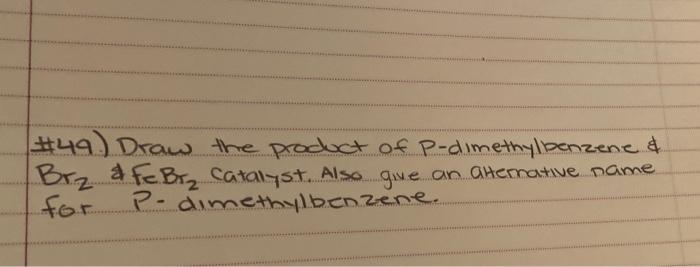 #49) Draw the product of P-dimethylbenzene &
Br₂ & FeBr₂ Catalyst. Also give an alternative name
for P-dimethylbenzene.